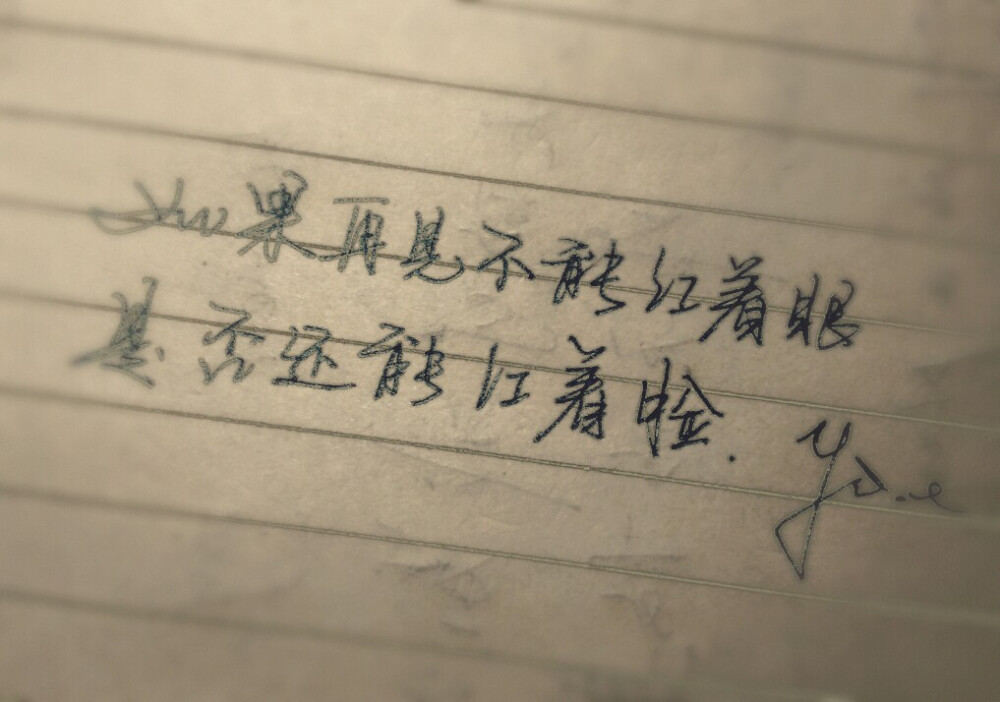 如果再见不能红着眼
是否还能红着脸.